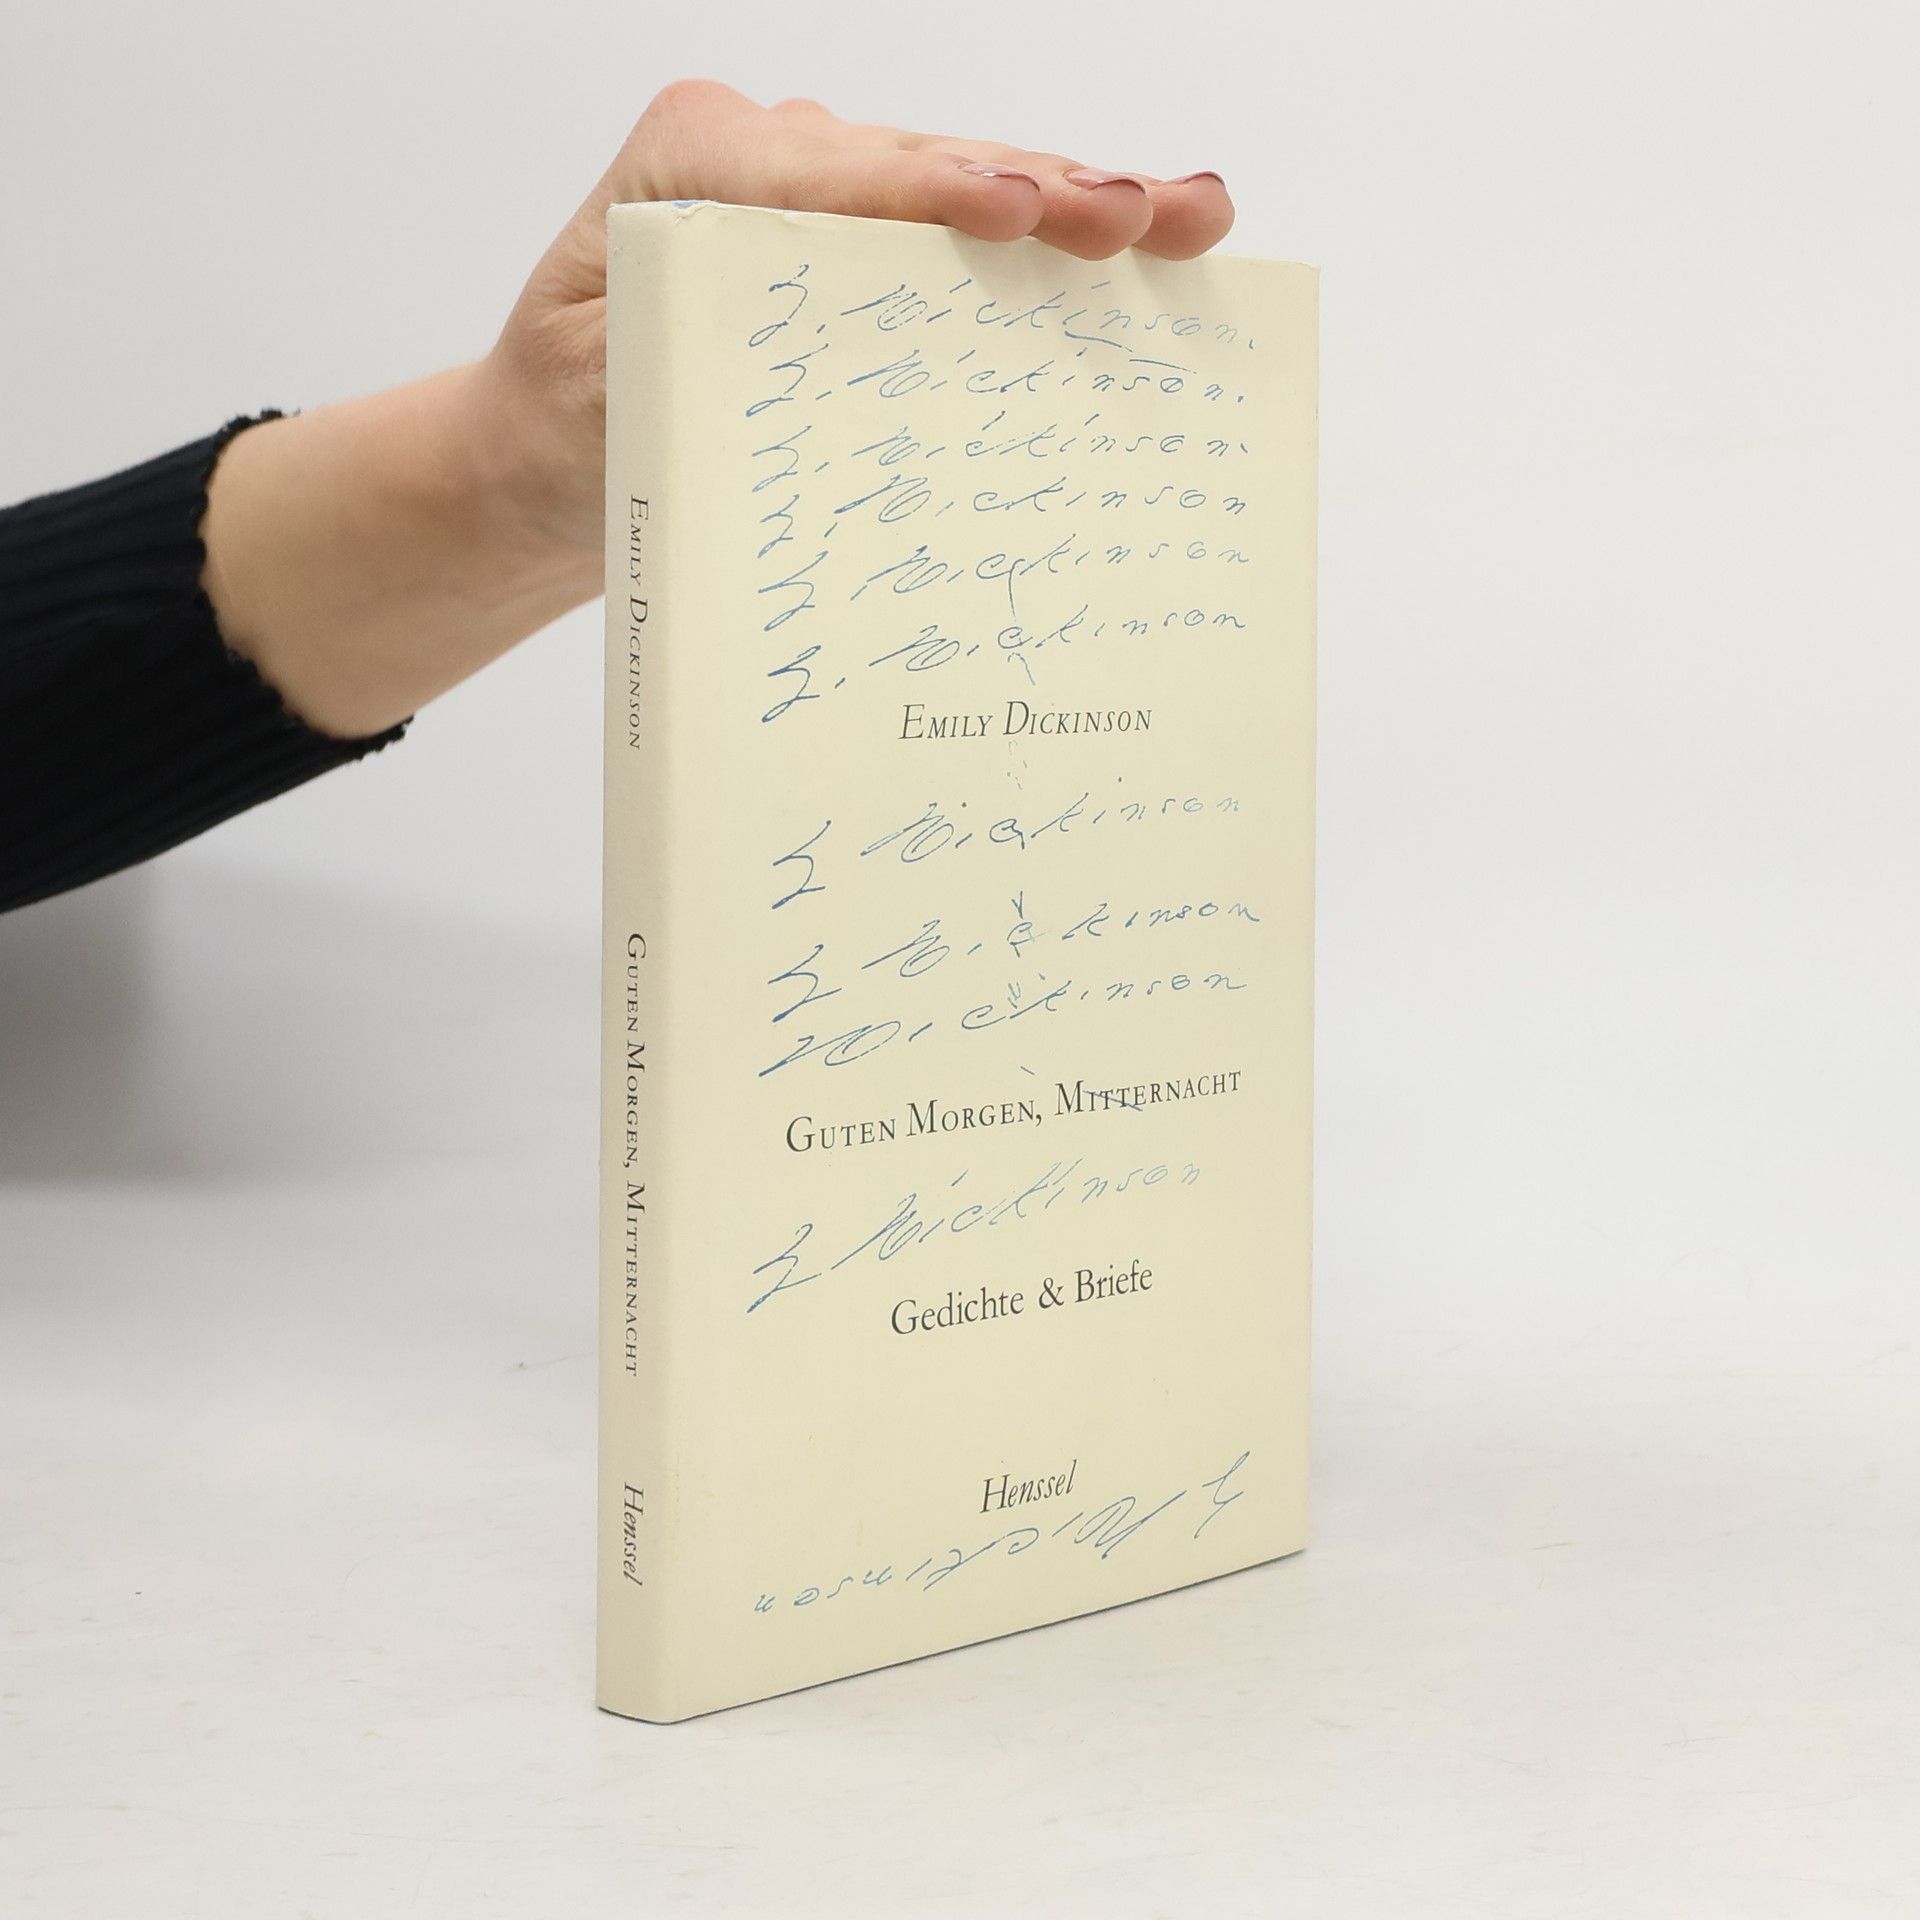 EMILY DICKINSON
GUTEN MORGEN, MITTERNACHT
Henssel
E. Dickinson.
E. Dickinson.
E. Dickinson.
E. Dickinson
E. Dickinson
E. Dickinson
EMILY DICKINSON
E Dickinson
E Dickinson
Dickinson
GUTEN MORGEN, MITTERNACHT
E Dickinson
Gedichte & Briefe
Henssel
E Dickinson